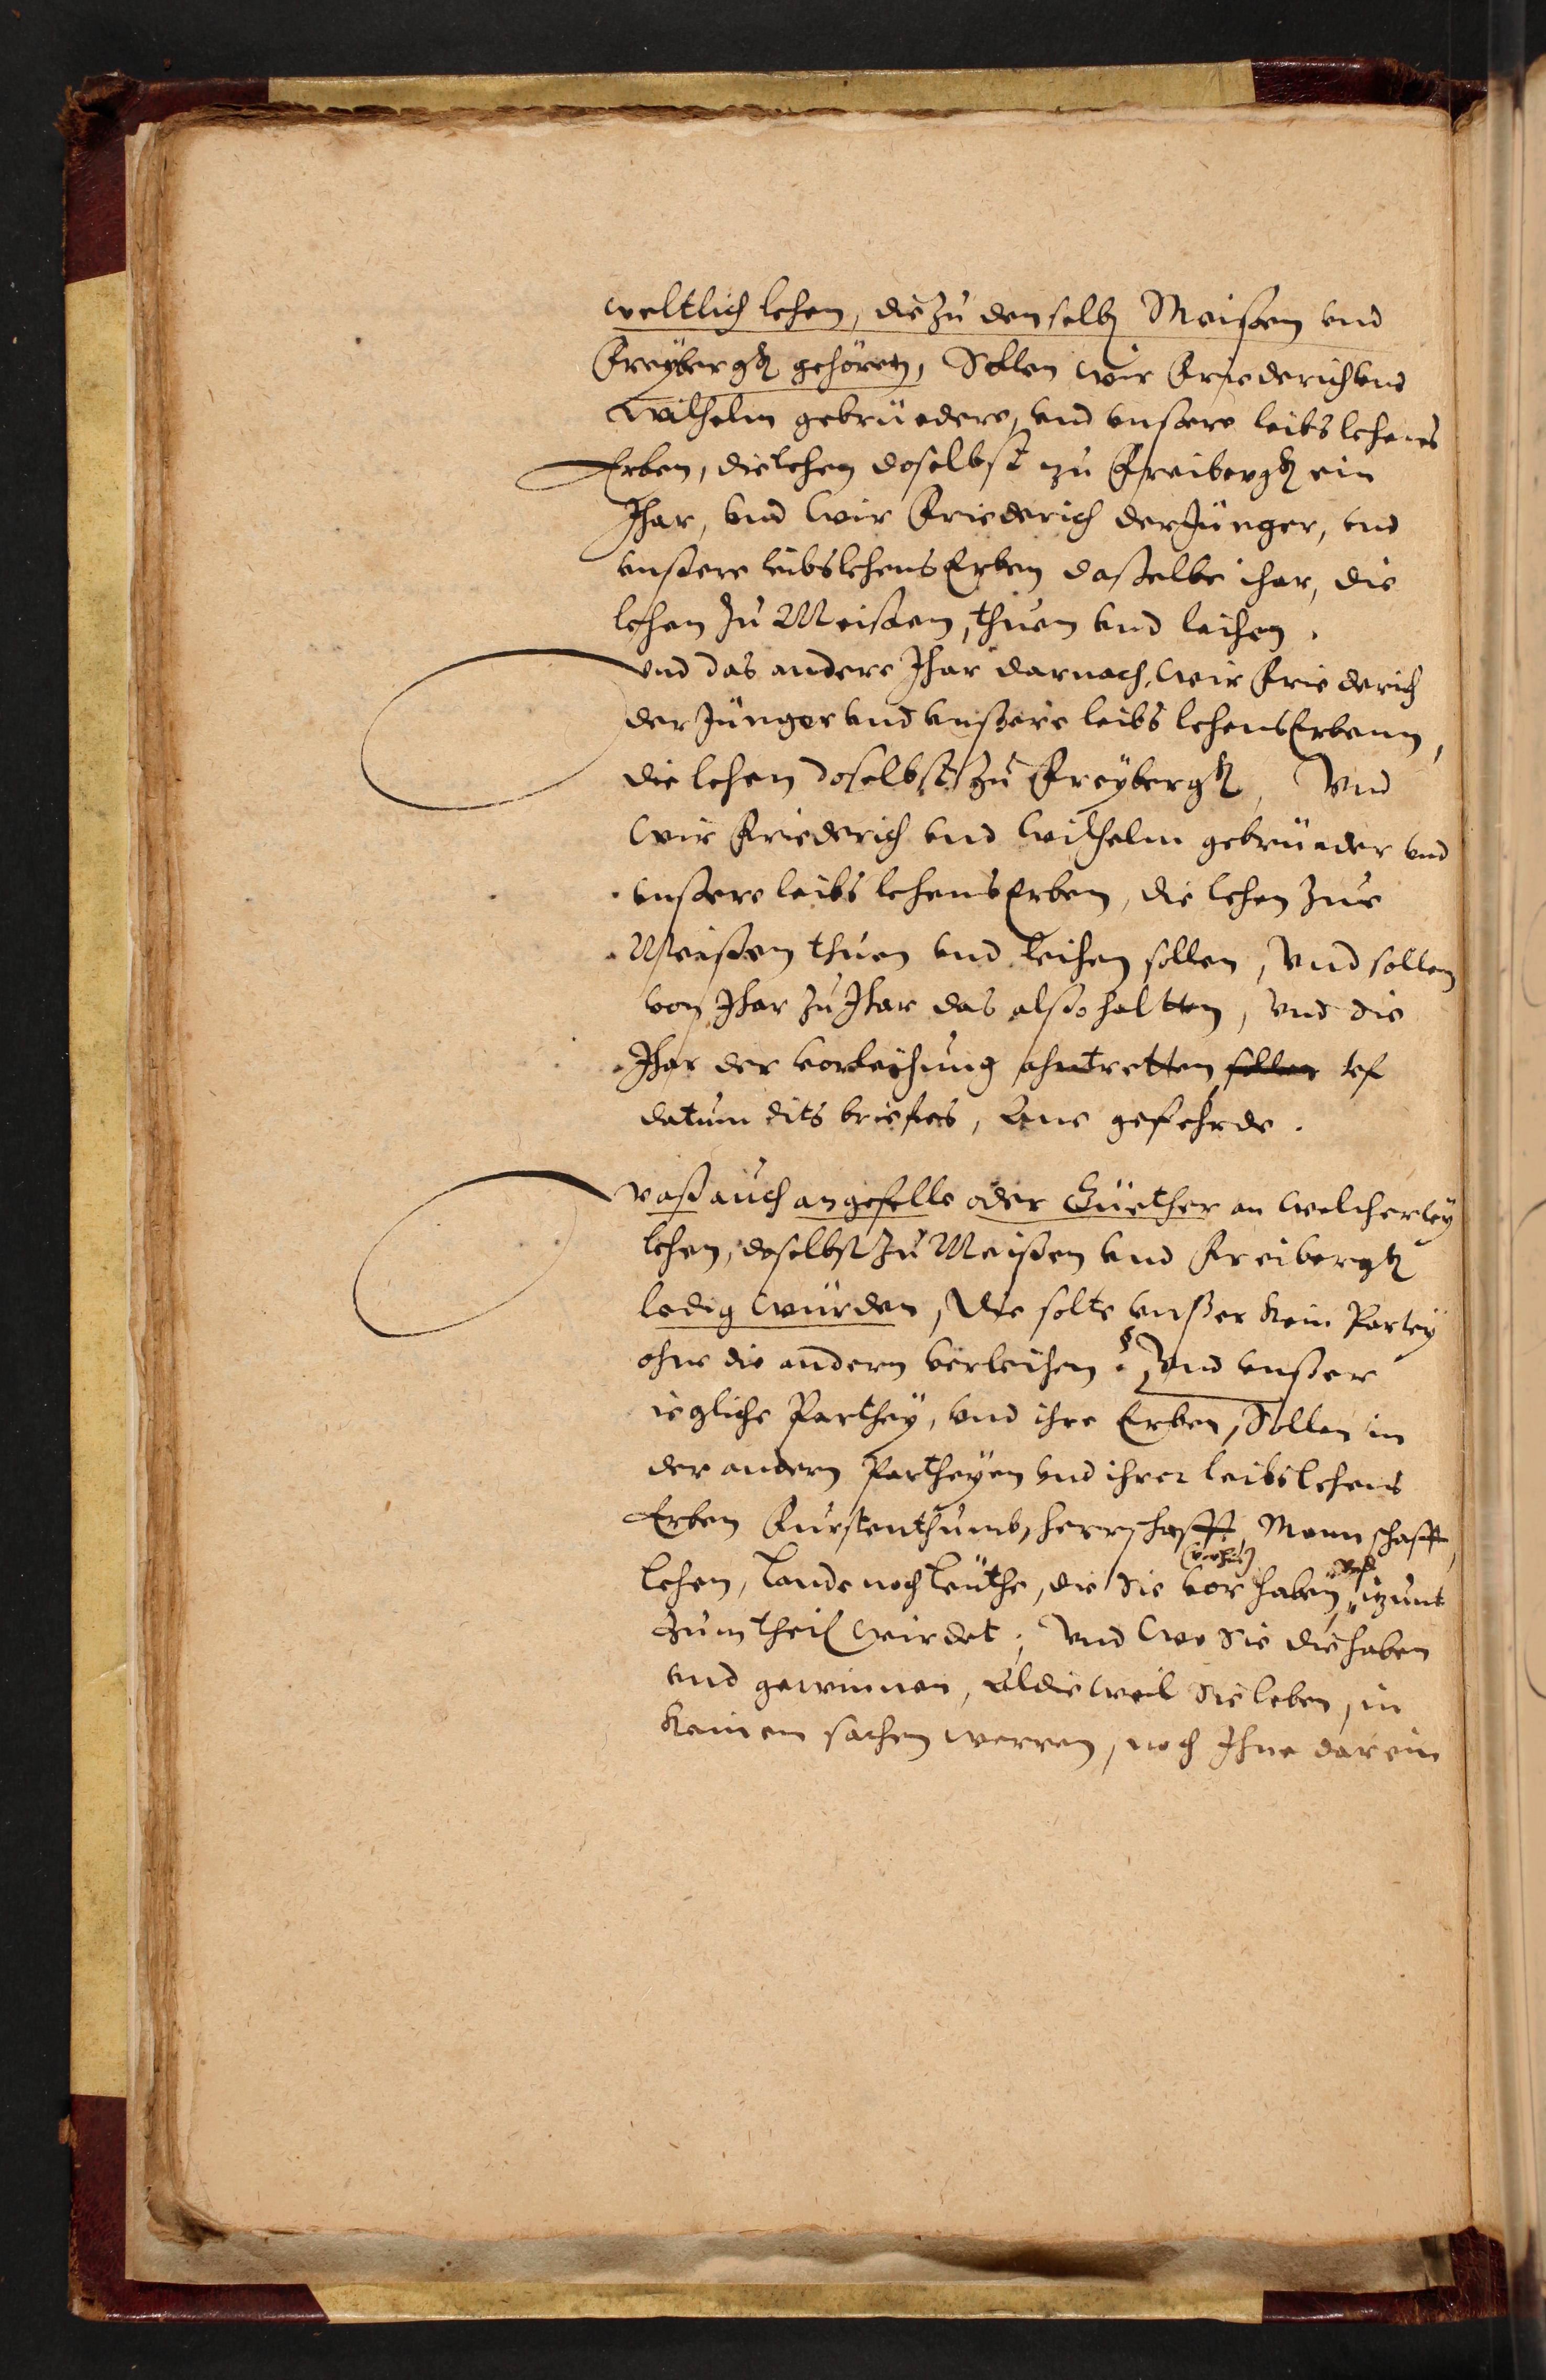 weltlich lehen, die zu denselb Meißen vnd
Freÿbergk gehören, Sollen wir Friederich vnd
Wilhelm gebrüedere, vnd vnsere leibs lehens
Erben, die lehen doselbst zu Freibergk ein
Jhar, vnd wir Friederich der Jünger, vnd
vnßere leibslehens Erben daßelbe ihar, die
lehen zu Meißen, thuen vnd leihen.
Vnd das andere Jhar darnach, wir Friederich
der Jünger vnd vnßere leibs lehens Erbenn,
die lehen doselbst zu Freÿbergk, Vnd
wir Friederich vnd Wilhelm gebrüeder vnd
vnßere leibs lehens Erben, die lehen zue
Meißen thuen vnd leihen sollen, Vnd sollen
von Jhar zu Jhar das also haltten, vnd die
Jhar der vorleihung ahntretten sollen
datum dits briefes, Ane gefehrde.
Waß auch angefelle oder Güether an welcherleÿ
lehen, doselbst zu Meißen vnd Freibergk
ledig würden, Die solte vnßer kein Parteÿ
ohne die andern verleihen § Vnd vnßer
iegliche Partheÿ, vnd ihre Erben, Sollen in
der andern Partheÿen vnd ihrer leibs lehens
Erben Furstenthumb, herrschafft, Mannschafft,
lehen, Lande noch Leüthe, die Sie vor haben, itzunt
zum theil wirdet, Vnd wo Sie die haben
vnd gewinnen, Aldieweil Sie leben, in
keinen sachen werren, noch Jhne darein